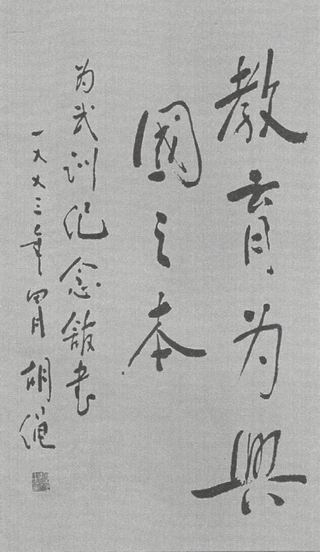 教育为興
國之本
为武训纪念舘书
一九九三年四月 胡绳